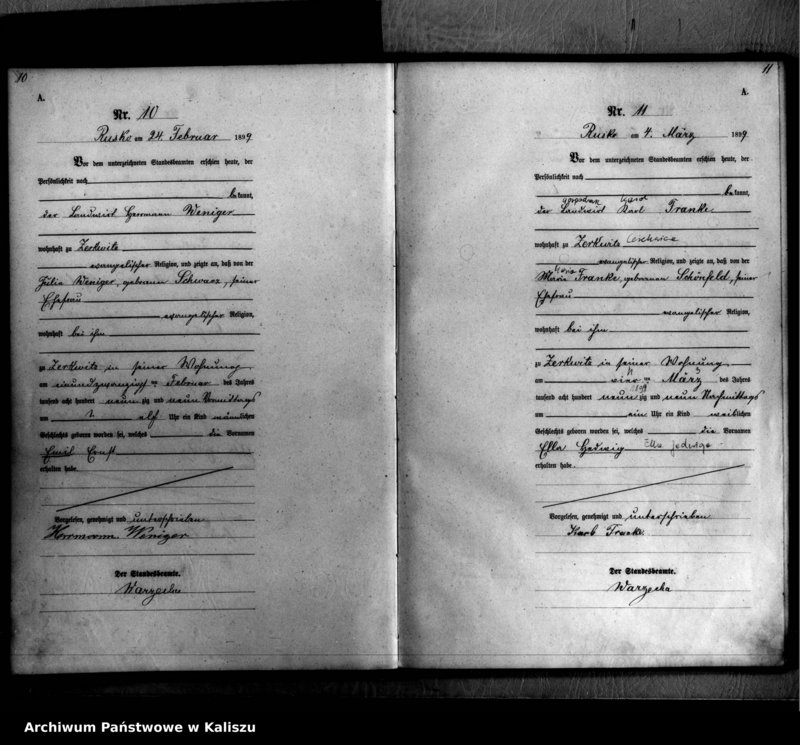 10
A.
Nr. 10
Rusko am 24. Februar 1899
Vor dem unterzeichneten Standesbeamten erschien heute, der
Persönlichkeit nach
bekannt,
der Landwirt Herrmann Weniger
wohnhaft zu Zerkwitz
evangelischer Religion, und zeigte an, daß von der
Julia Weniger, geborenen Schwarz, seiner
Ehefrau
evangelischer Religion,
wohnhaft bei ihm
zu Zerkwitz in seiner Wohnung
am einundzwanzigsten Februar des Jahres
tausend acht hundert neunzig und neun Vormittags
um elf Uhr ein Kind männlichen
Geschlechts geboren worden sei, welches die Vornamen
Emil Ernst
erhalten habe.
Vorgelesen, genehmigt und unterschrieben
Herrmann Weniger
Der Standesbeamte.
Warzecha
11
A.
Nr. 11
Rusko am 4. März 1899
Vor dem unterzeichneten Standesbeamten erschien heute, der
Persönlichkeit nach
bekannt,
gospodarz Karol
der Landwirt Karl Franke
wohnhaft zu Zerkwitz
evangelischer Religion, und zeigte an, daß von der
Maria
Marie Franke, geborenen Schönfeld, seiner
Ehefrau
evangelischer Religion,
wohnhaft bei ihm
zu Zerkwitz in seiner Wohnung
am vier März des Jahres
1899
tausend acht hundert neunzig und neun Nachmittags
um ein Uhr ein Kind weiblichen
Geschlechts geboren worden sei, welches die Vornamen
Ella Hedwig Ella Jadwiga
erhalten habe.
Vorgelesen, genehmigt und unterschrieben
Karl Franke.
Der Standesbeamte.
Warzecha
Archiwum Państwowe w Kaliszu